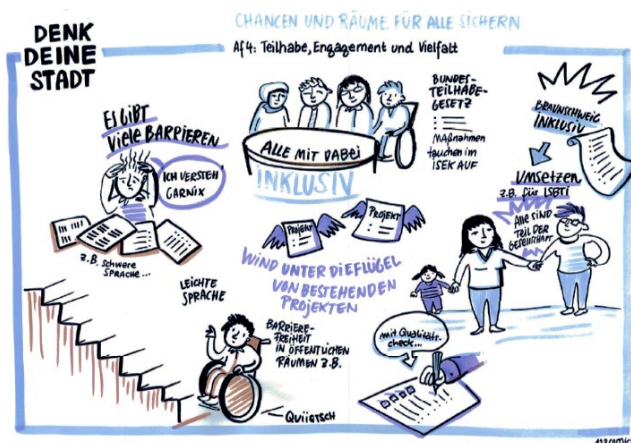 DENK
DEINE
STADT
CHANCEN UND RÄUME FÜR ALLE SICHERN
Af4: Teilhabe, Engagement und Vielfalt
ES GIBT
Viele BARRIEREN
ICH VERSTEH
GARNIX
z.B. schwere
SPRACHE...
ALLE MIT DABEI
INKLUSIV
BUNDES-
TEILHABE-
GESETZ
MAßNAHMEN
tauchen im
ISEK AUF
BRAUNSCHWEIG
INKLUSIV
UMSETZEN
z.B. für LSBTI
Alle sind
TEIL DER
GESELLSCHAFT
PROJEKT
PROJEKT
WIND UNTER DIE FLÜGEL
VON BESTEHENDEN
PROJEKTEN
LEICHTE
SPRACHE
BARRIERE-
FREIHEIT
IN ÖFFENTLICHEN
RÄUMEN z.B.
QUIIETSCH
mit Qualitäts-
check...